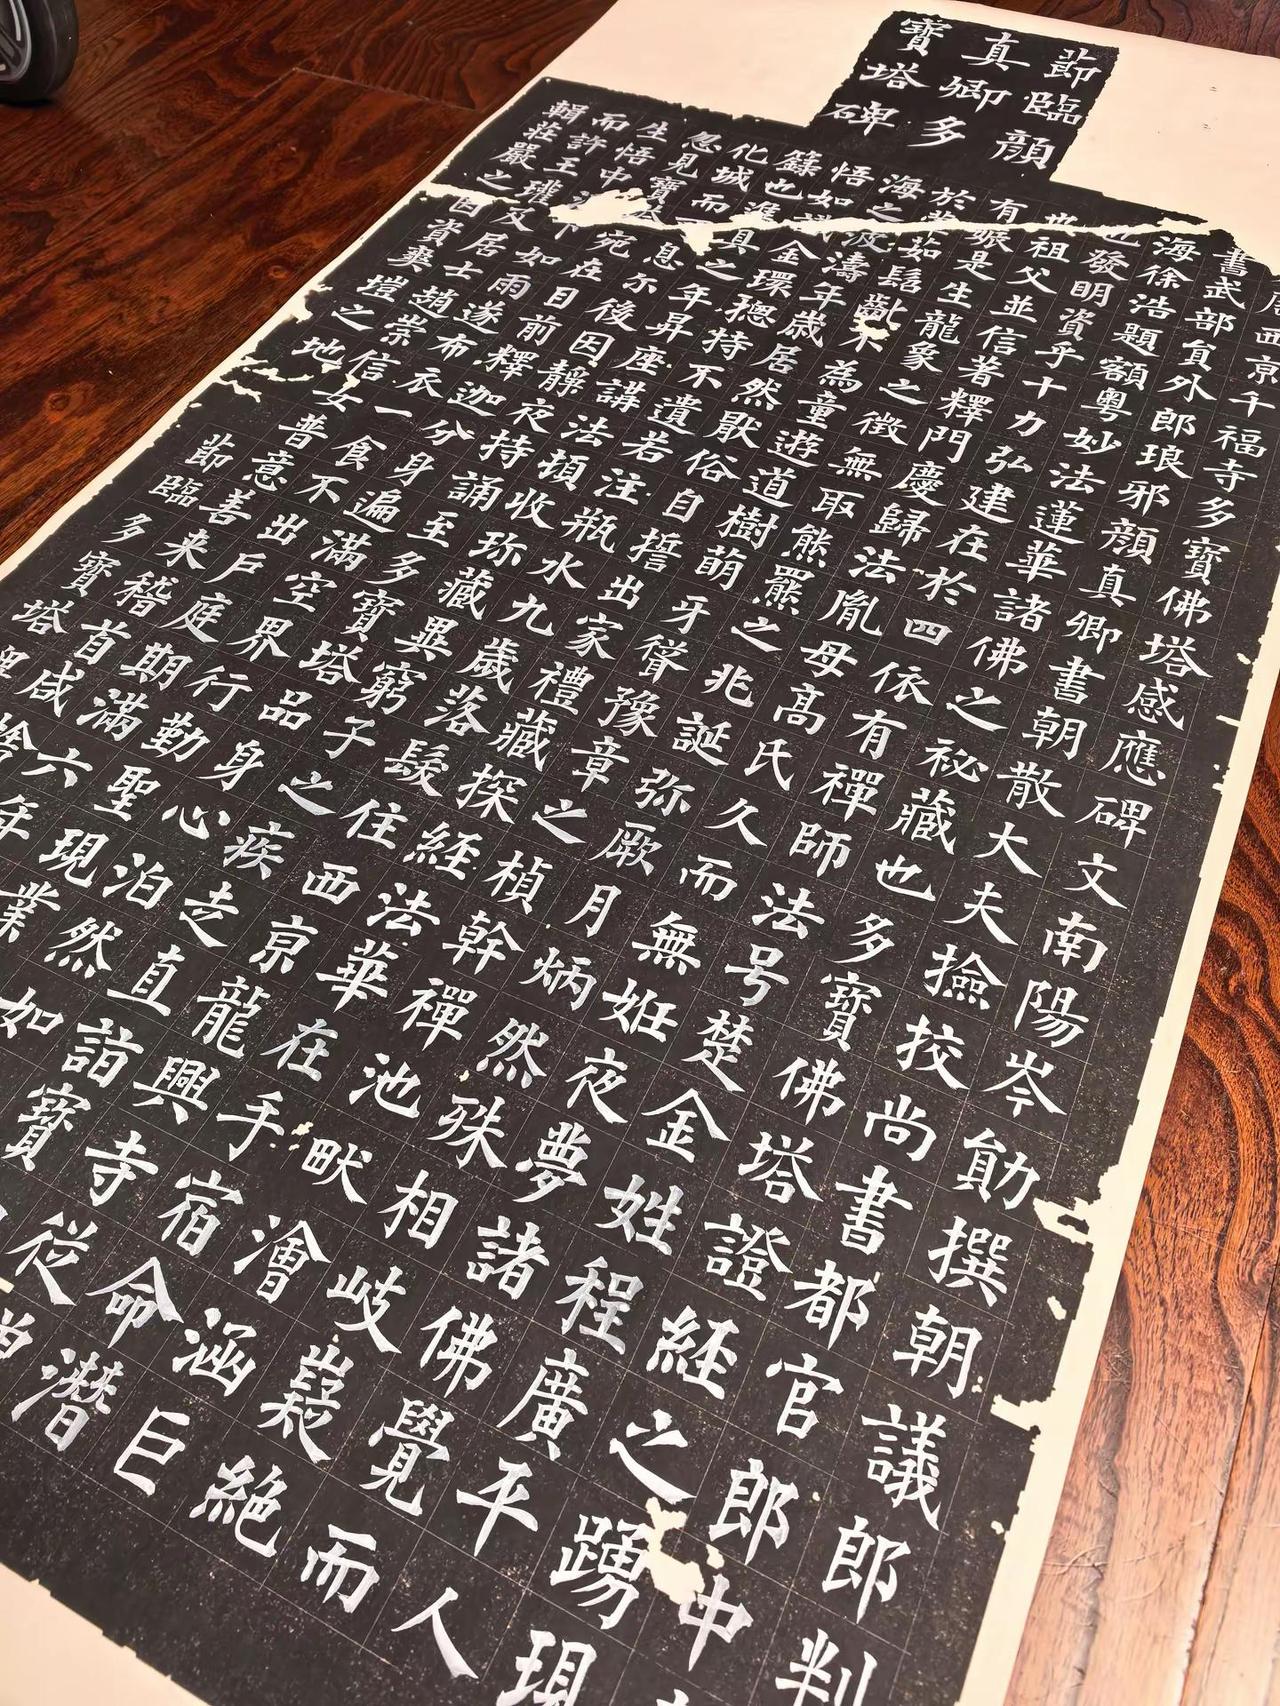 莭臨顏
真卿多
寶塔碑
唐西京千福寺多寶佛塔感應碑文南陽岑勛撰朝議郎判
書武部員外郎琅邪顏真卿書朝散大夫撿挍尚書都官郎中
海徐浩題額粵妙法蓮華諸佛之祕藏也多寶佛塔證經之踴現
也發明資乎十力弘建在於四依有禪師法号楚金姓程廣平人
祖父並信著釋門慶歸法胤母高氏久而無姙夜夢諸佛覺而
有娠是生龍象之徵無取熊羆之兆誕弥厥月炳然殊相岐嶷絕
於葷茹髫齔不為童遊道樹萌牙聳豫章之楨幹禪池畎澮涵巨
海之波濤年歲居然厭俗自誓出家禮藏探經法華在手宿命潛
悟如識金環揔持不遺若注瓶水九歲落髮住西京龍興寺從僧
籙也進具之年昇座講法頓收珎藏異窮子之疾走直詣寶
化城而息尔後因靜夜持誦至多寶塔品身心泊然如
忽見寶塔宛在目前釋迦分身遍滿空界行勤聖現業
生悟中下如雨遂布衣一食不出戶庭期滿六年
而許王瓘及居士趙崇信女普意善来稽首咸捨
輯莊嚴之因資爽塏之地
莭臨多寶塔